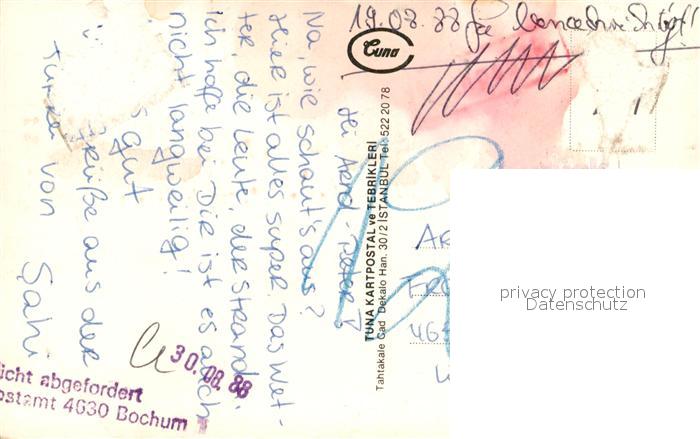 19.08.88
Tuna
Hi Arnd-Peter!
Na, wie schaut's aus?
Hier ist alles super. Das Wet-
ter, die Leute, der Strand.
ich hoffe bei Dir ist es auch
nicht langweilig!
gut
Grüße aus der
Türkei von
Sahi
TUNA KARTPOSTAL ve TEBRİKLERİ
Tahtakale Cad Dekalo Han. 30/2 İSTANBUL Tel: 522 20 78
AR
FRO
46
30.08.88
icht abgefordert
ostamt 4630 Bochum 1
privacy protection
Datenschutz